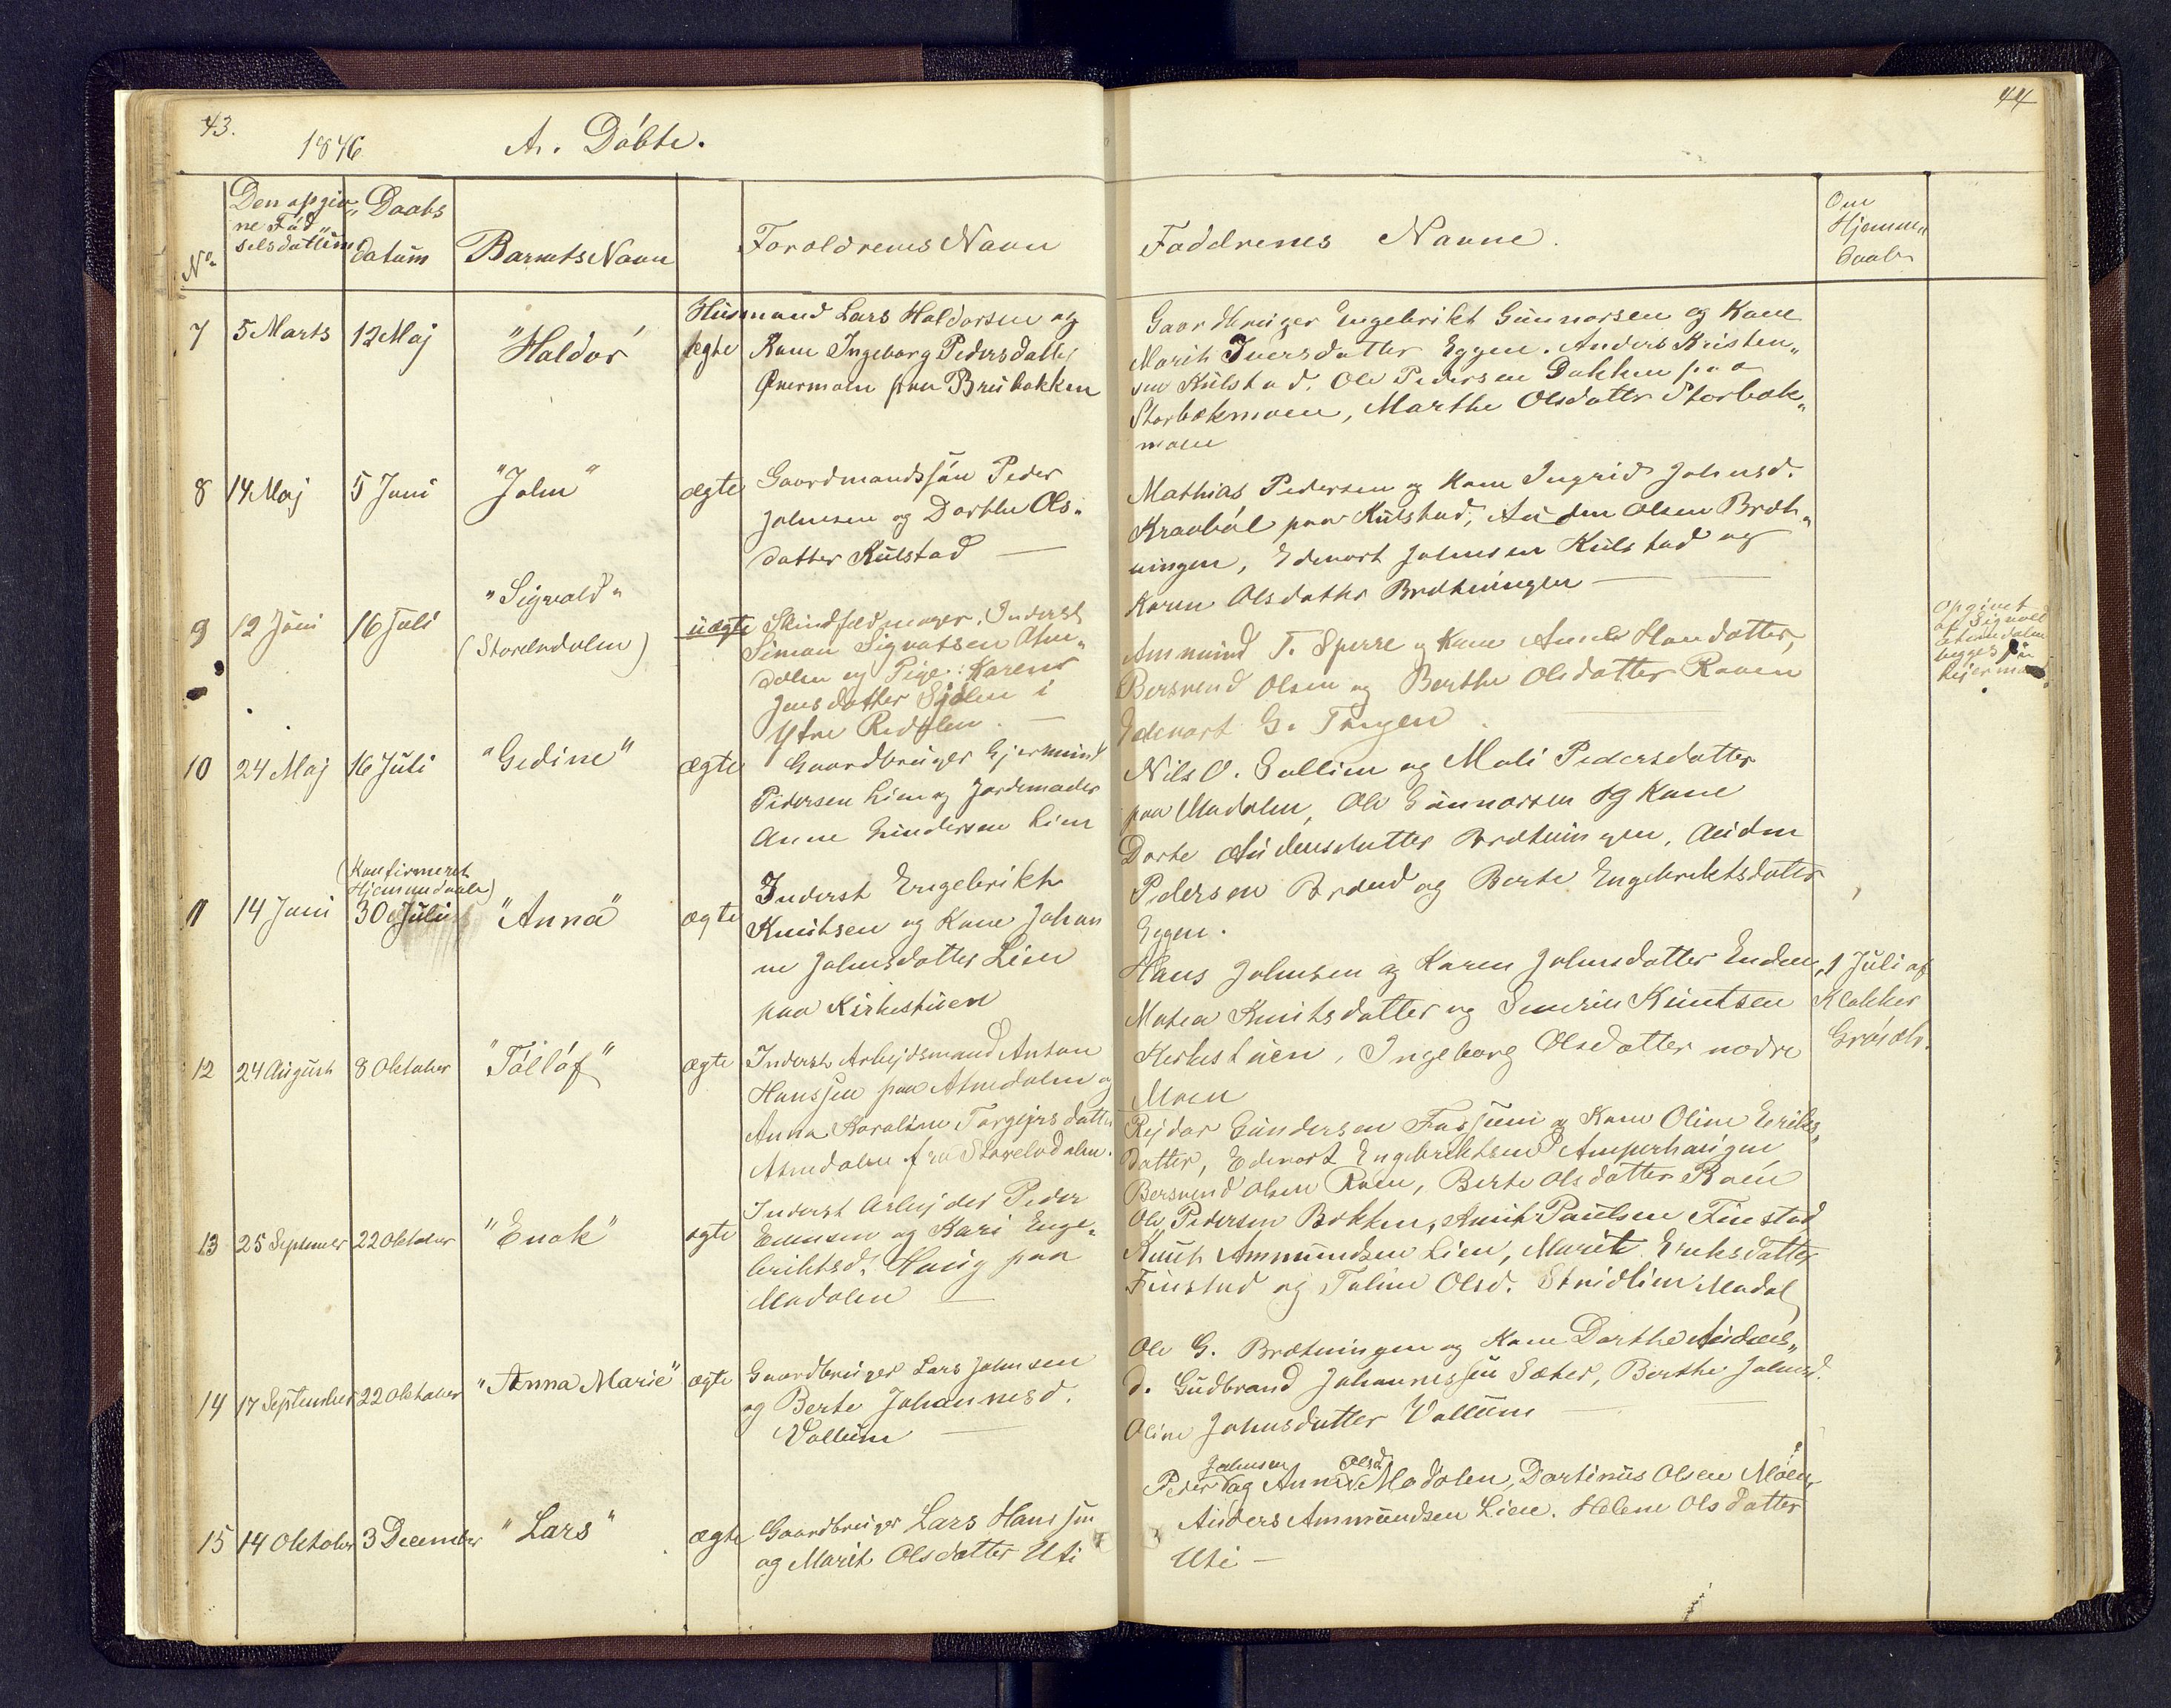 43.
1876
A. Döbte.
44
No.
Den opgiv-
ne Föd
selsdatum
Daabs
datum
Barnets Navn
Foroldrenes Navn
Faddrenes Navne.
Om
Hjemme-
daab
7
5 Marts
12 Maj
"Haldor"
ægte
Husmand Lars Haldorsen og
Kone Ingeborg Pedersdatter
Övermoen paa Brubakken
Gaardbruger Engebrikt Gunnarsen og Kone
Marith Iversdatter Eggen. Anders Kristen-
sen Kulstad. Ole Pedersen Bakken paa
Storbekmoen, Marthe Olsdatter Storbek-
moen
8
14 Maj
5 Juni
"John"
ægte
Gaardmandssön Peder
Johnsen og Dorthe Ols-
datter Kulstad —
Mathias Pedersen og Kone Ingrid Johnsd.
Kraaböl paa Kulstad, Auden Olsen Bret-
ningen, Edevart Johnsen Kulstad og
Karen Olsdatter Bretningen —
9
12 Juni
16 Juli
"Sigvald"
(Storelvdalen)
uægte
Skindfeldmager, Inderst
Simon Sigvatsen Atne-
dalen og Pige: Karen
Jensdatter Sjölen i
Ytre Rendalen. —
Ammund T. Sperre og Kone Hansdatter,
Bersvend Olsen og Berthe Olsdatter Roen
Edevart G. Trogen
Opgivet
af Sigvald
Atnedalen
begges
Lejermaal
10
24 Maj
16 Juli
"Gedine"
ægte
Gaardbruger Gjermund
Pedersen Lien og Jordemoder
Anne Gundersen Lien
Nils O. Sollien og Mali Pedersdatter
paa Modalen, Ole Gunnarsen og Kone
Dorte Audensdatter Bretningen, Auden
Pedersen Brænd og Berte Engebrektsdatter
Eggen.
11
14 Juni
(Konfirmeret
Hjemmedaab)
30 Juli
"Anna"
ægte
Inderst Engebrikt
Knutsen og Kone Johan
ne Johnsdatter Lien
paa Kirkestuen
Hans Johnsen og Karen Johnsdatter Enden,
Matea Knutsdatter og Knutsen
Kirkestuen, Ingeborg Olsdatter nodre
Moen
1 Juli af
Klokker
12
24 August
8 Oktober
"Töllöf"
ægte
Inderst Arbejdsmand Anton
Hanssen paa Atnedalen og
Anna Karoline Torgejrsdatter
Atnedalen fra Storelvdalen.
Rejdar Gundersen Fossum og Kone Oline Eriks-
datter, Edevart Engebrektsen Amperhaugen
Bersvend Olsen Roen, Berte Olsdatter Roen
13
25 September
22 Oktober
"Enok"
ægte
Inderst Arbejder Peder
Evensen og Kari Enge-
briktsd. Haug paa
Modalen —
Ole Pedersen Bekken, Paulsen Finstad
Knut Ammundsen Lien, Marit Eriksdatter
Finstad og Taline Olsd. Stridlien Modal
14
17 September
22 Oktober
"Anna Marie"
ægte
Gaardbruger Lars Johnsen
og Berte Johannesd.
Vollum —
Ole G. Brætningen og Kone Dorthe Audens-
d. Gudbrand Johannessen Sæter, Berthe Johnsd.
Oline Johnsdatter Vollum —
15
14 Oktober
3 December
"Lars"
ægte
Gaardbruger Lars Hanssen
og Marit Olsdatter Uti
Johnsen Olsd
Peder og Anne Modalen, Dortinus Olsen Moen,
Anders Ammundsen Lien. Helene Olsdatter
Uti —